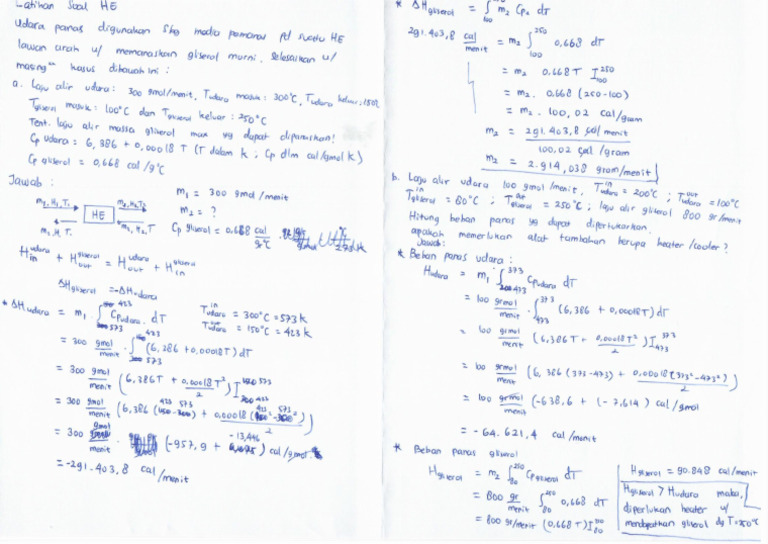 Latihan Soal HE
Udara panas digunakan sbg media pemanas pd suatu HE
lawan arah u/ memanaskan gliserol murni. Selesaikan u/
masing" kasus dibawah ini :
a. Laju alir udara : 300 gmol/menit, Tudara masuk : 300°C, Tudara keluar : 150°C
Tgliserol masuk : 100°C dan Tgliserol keluar : 250°C
Tent. laju alir massa gliserol max yg dapat dipanaskan!
Cp udara = 6,386 + 0,00018 T (T dalam K ; Cp dlm cal/gmol K)
Cp gliserol = 0,668 cal/g°C
Jawab :
m2, H1, T1 → HE → m2, H2, T2
m1, H, T ← m1, H2, T
m1 = 300 gmol/menit
m2 = ?
Cp gliserol = 0,668 cal/gr°C
Hin udara + Hout gliserol = Hout udara + Hin gliserol
ΔHgliserol = -ΔHudara
* ΔHudara = m1 ∫573 423 Cpudara dT
Tin udara = 300°C = 573 K
Tout udara = 150°C = 423 K
= 300 gmol/menit ∫573 423 (6,386 + 0,00018T) dT
= 300 gmol/menit (6,386T + 0,00018T²/2) I
= 300 gmol/menit (6,386 (423-573) + 0,00018 (423²-573²)/2)
= 300 gmol/menit (-957,9 + -13,446) cal/gmol
= -291.403,8 cal/menit
* ΔHgliserol = ∫100 250 m2 Cp2 dT
291.403,8 cal/menit = m2 ∫100 250 0,668 dT
= m2 0,668 T I100 250
= m2. 0,668 (250-100)
= m2. 100,02 cal/gram
m2 = 291.403,8 cal/menit / 100,02 cal/gram
m2 = 2.914,038 gram/menit
b. Laju alir udara 100 gmol/menit, Tudara in = 200°C ; Tudara out = 100°C
Tgliserol in = 80°C ; Tgliserol out = 250°C ; laju alir gliserol 800 gr/menit
Hitung beban panas yg dapat dipertukarkan.
apakah memerlukan alat tambahan berupa heater/cooler?
Jawab :
* Beban panas udara :
Hudara = m1 ∫473 373 Cpudara dT
= 100 grmol/menit ∫473 373 (6,386 + 0,00018T) dT
= 100 grmol/menit (6,386T + 0,00018T²/2) I473 373
= 100 grmol/menit (6,386 (373-473) + 0,00018 (373²-473²)/2)
= 100 grmol/menit (-638,6 + (-7,614) cal/gmol
= -64.621,4 cal/menit
* Beban panas gliserol
Hgliserol = m2 ∫80 250 Cpgliserol dT
= 800 gr/menit ∫80 250 0,668 dT
= 800 gr/menit (0,668 T) I80
Hgliserol = 90.848 cal/menit
Hgliserol > Hudara maka,
diperlukan heater u/
mendapatkan gliserol dg T=250°C